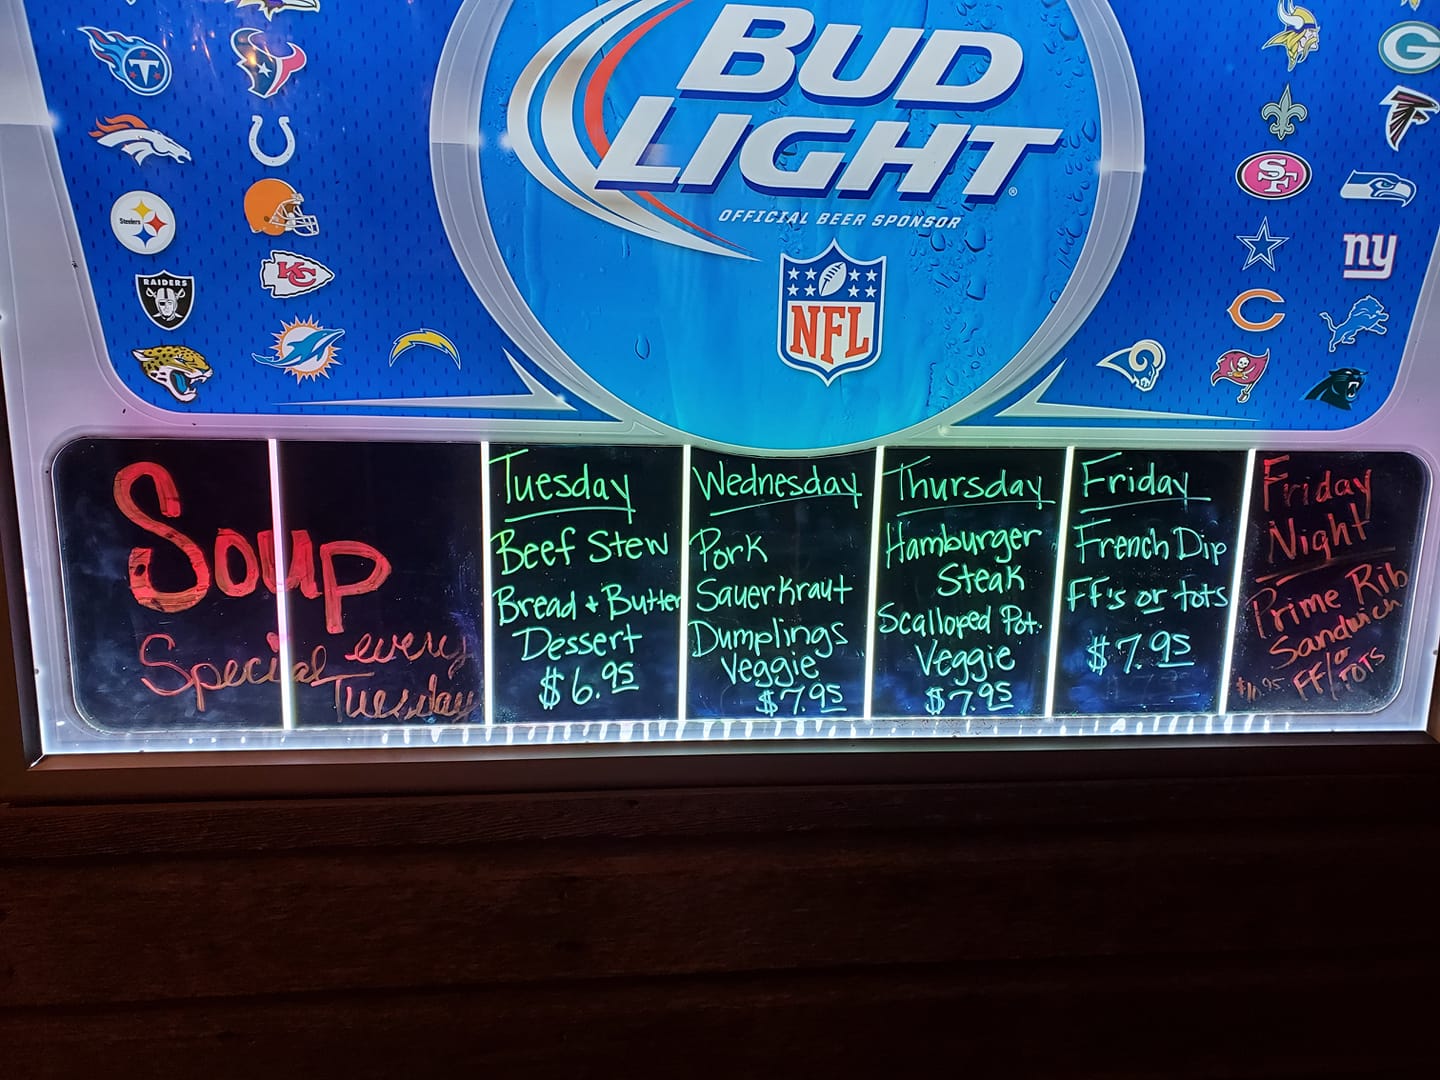 BUD
LIGHT
®
OFFICIAL BEER SPONSOR
NFL
T
Steelers
RAIDERS
KC
G
SF
ny
C
Soup
Special every
Tuesday
Tuesday
Beef Stew
Bread + Butter
Dessert
$6.95
Wednesday
Pork
Sauerkraut
Dumplings
Veggie
$7.95
Thursday
Hamburger
Steak
Scalloped Pot.
Veggie
$7.95
Friday
French Dip
FF's or tots
$7.95
Friday
Night
Prime Rib
Sandwich
FF/or
TOTS